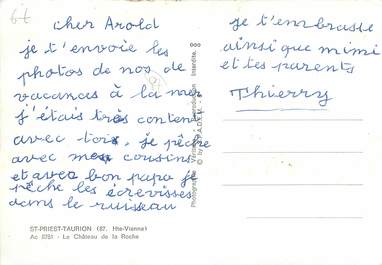 cher Arold
je t'envoie les
photos de nos de
vacances à la mer
j'étais très content
avec toi, je pêche
avec mes cousins
et avec bon papa je
pêche les écrevisses
dans le ruisseau
ST-PRIEST-TAURION (87. Hte-Vienne)
Le Château de la Roche
je t'embrasse
ainsi que mimi
et tes parents
Thierry